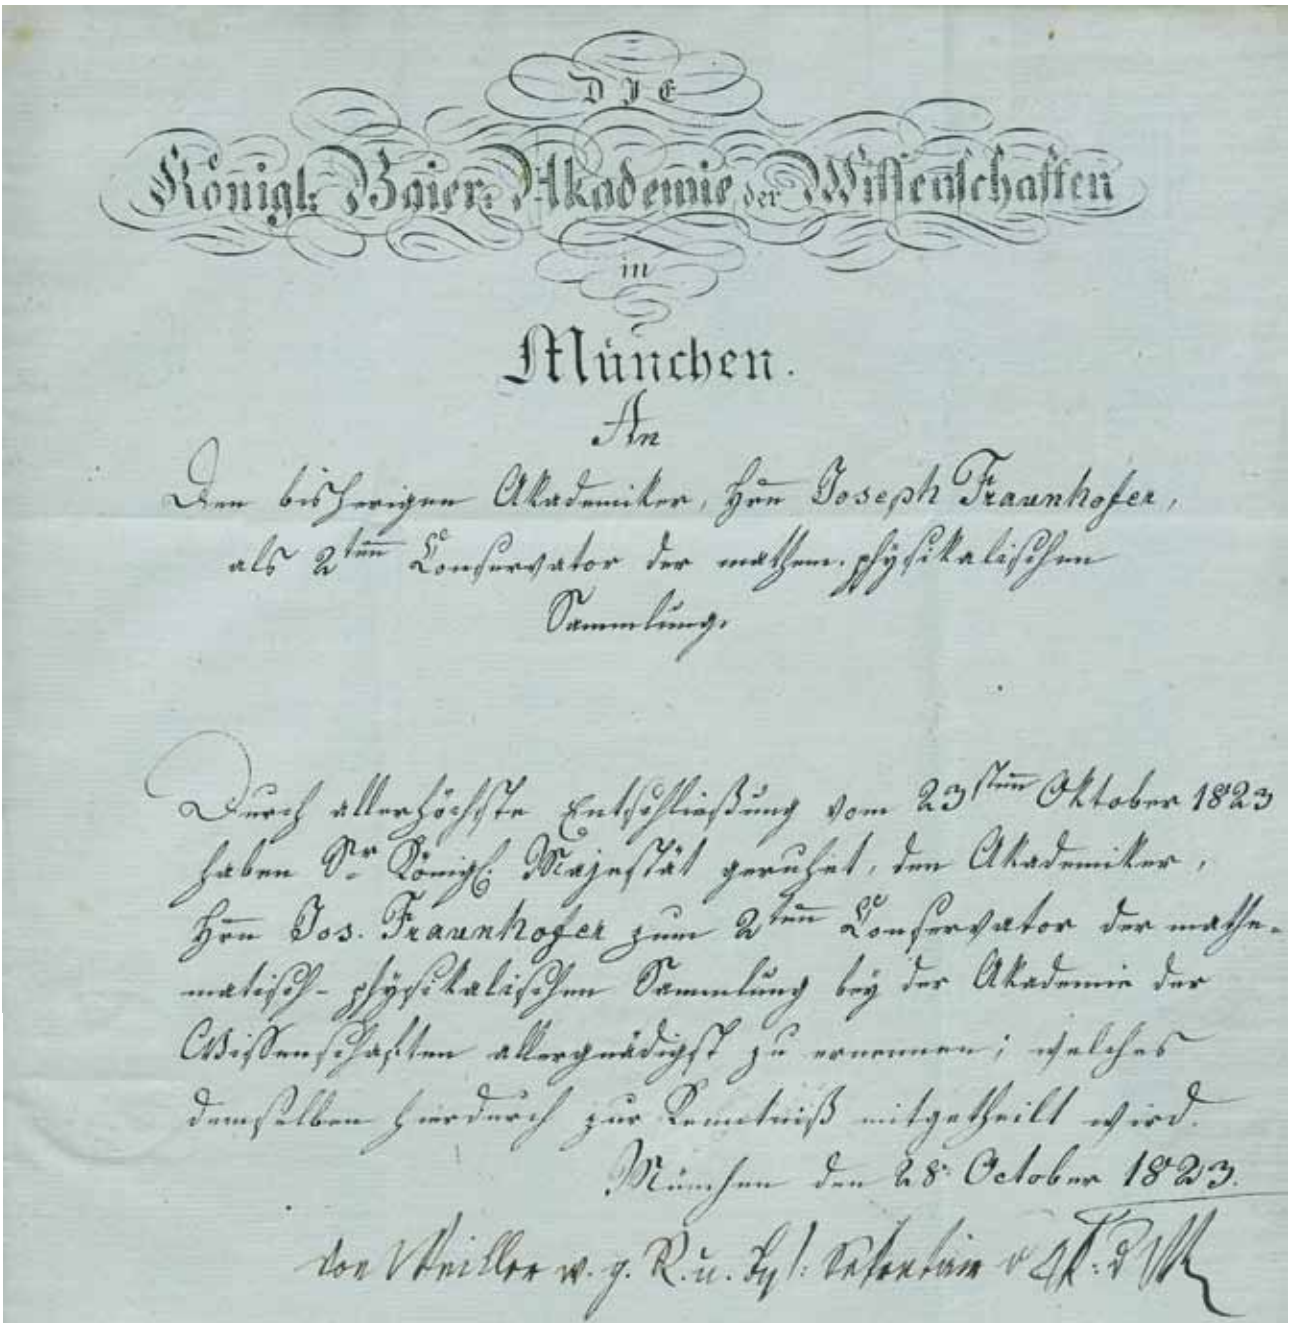 DIE
Königl: Baier: Akademie der Wissenschaften
in
München.
An
Den bisherigen Akademiker, Hrn Joseph Fraunhofer,
als 2ten Conservator der mathem. physikalischen
Sammlung.
Durch allerhöchste Entschließung vom 23sten Oktober 1823
haben Sr Königl. Majestät geruhet, den Akademiker,
Hrn Jos. Fraunhofer zum 2ten Conservator der mathe-
matisch-physikalischen Sammlung bey der Akademie der
Wissenschaften allergnädigst zu ernennen; welches
demselben hierdurch zur Kenntniß mitgetheilt wird.
München den 28. October 1823.
von Weiller w. g. R. u. Sekretär d. Ak. d. W.